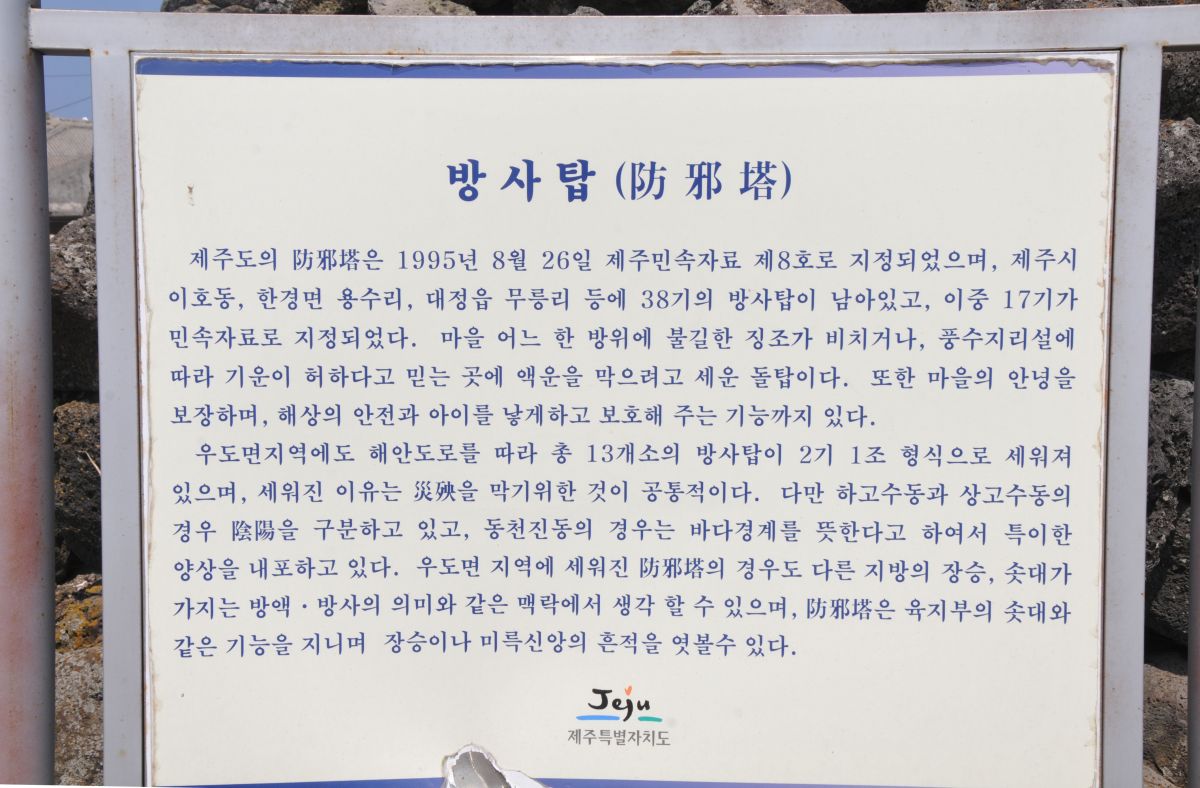 방사탑 (防邪塔)
제주도의 防邪塔은 1995년 8월 26일 제주민속자료 제8호로 지정되었으며, 제주시
이호동, 한경면 용수리, 대정읍 무릉리 등에 38기의 방사탑이 남아있고, 이중 17기가
민속자료로 지정되었다. 마을 어느 한 방위에 불길한 징조가 비치거나, 풍수지리설에
따라 기운이 허하다고 믿는 곳에 액운을 막으려고 세운 돌탑이다. 또한 마을의 안녕을
보장하며, 해상의 안전과 아이를 낳게하고 보호해 주는 기능까지 있다.
우도면지역에도 해안도로를 따라 총 13개소의 방사탑이 2기 1조 형식으로 세워져
있으며, 세워진 이유는 災殃을 막기위한 것이 공통적이다. 다만 하고수동과 상고수동의
경우 陰陽을 구분하고 있고, 동천진동의 경우는 바다경계를 뜻한다고 하여서 특이한
양상을 내포하고 있다. 우도면 지역에 세워진 防邪塔의 경우도 다른 지방의 장승, 솟대가
가지는 방액·방사의 의미와 같은 맥락에서 생각 할 수 있으며, 防邪塔은 육지부의 솟대와
같은 기능을 지니며 장승이나 미륵신앙의 흔적을 엿볼수 있다.
Jeju
제주특별자치도